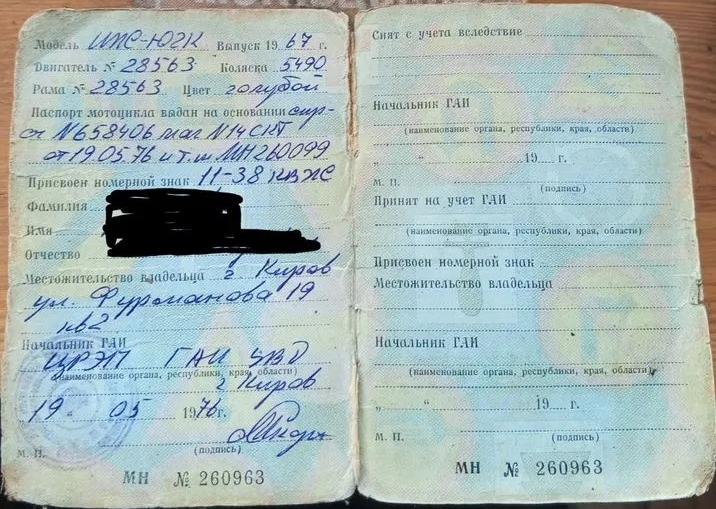 Модель ИЖ-Ю2К Выпуск 1967 г.
Двигатель № 28563 Коляска 5490
Рама № 28563 Цвет голубой
Паспорт мотоцикла выдан на основании спр-
сч N658406 маг N14 СКТ
от 19.05.76 и т.ш МН260099
Присвоен номерной знак 11-38 КВЖ
Фамилия
Имя
Отчество
Местожительство владельца г Киров
ул. Фурманова 19
кв2
Начальник ГАИ
ЦРЭП ГАИ УВД
(наименование органа, республики, края, области)
г Киров
19 05 1976г.
(подпись)
М. П.
МН № 260963
Снят с учета вследствие
Начальник ГАИ
(наименование органа, республики, края, области)
„ “ 19 г.
М. П. (подпись)
Принят на учет ГАИ
(наименование органа, республики, края, области)
Присвоен номерной знак
Местожительство владельца
Начальник ГАИ
(наименование органа, республики, края, области)
„ “ 19 г.
М. П. (подпись)
МН № 260963